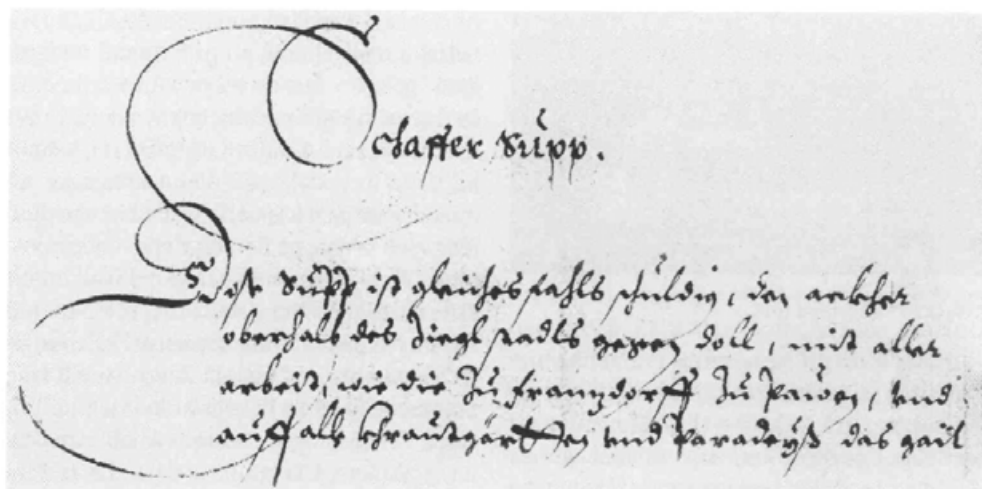 Schaffer Süpp.
Jost Süpp ist gleichesfahls schuldig, den ackher
oberhalb des Ziegl stadls gegen Doll, mit aller
arbeit, wie die zu franzdorff zu pauen, und
auff alle khrautgärtten und Paradeyß das gail